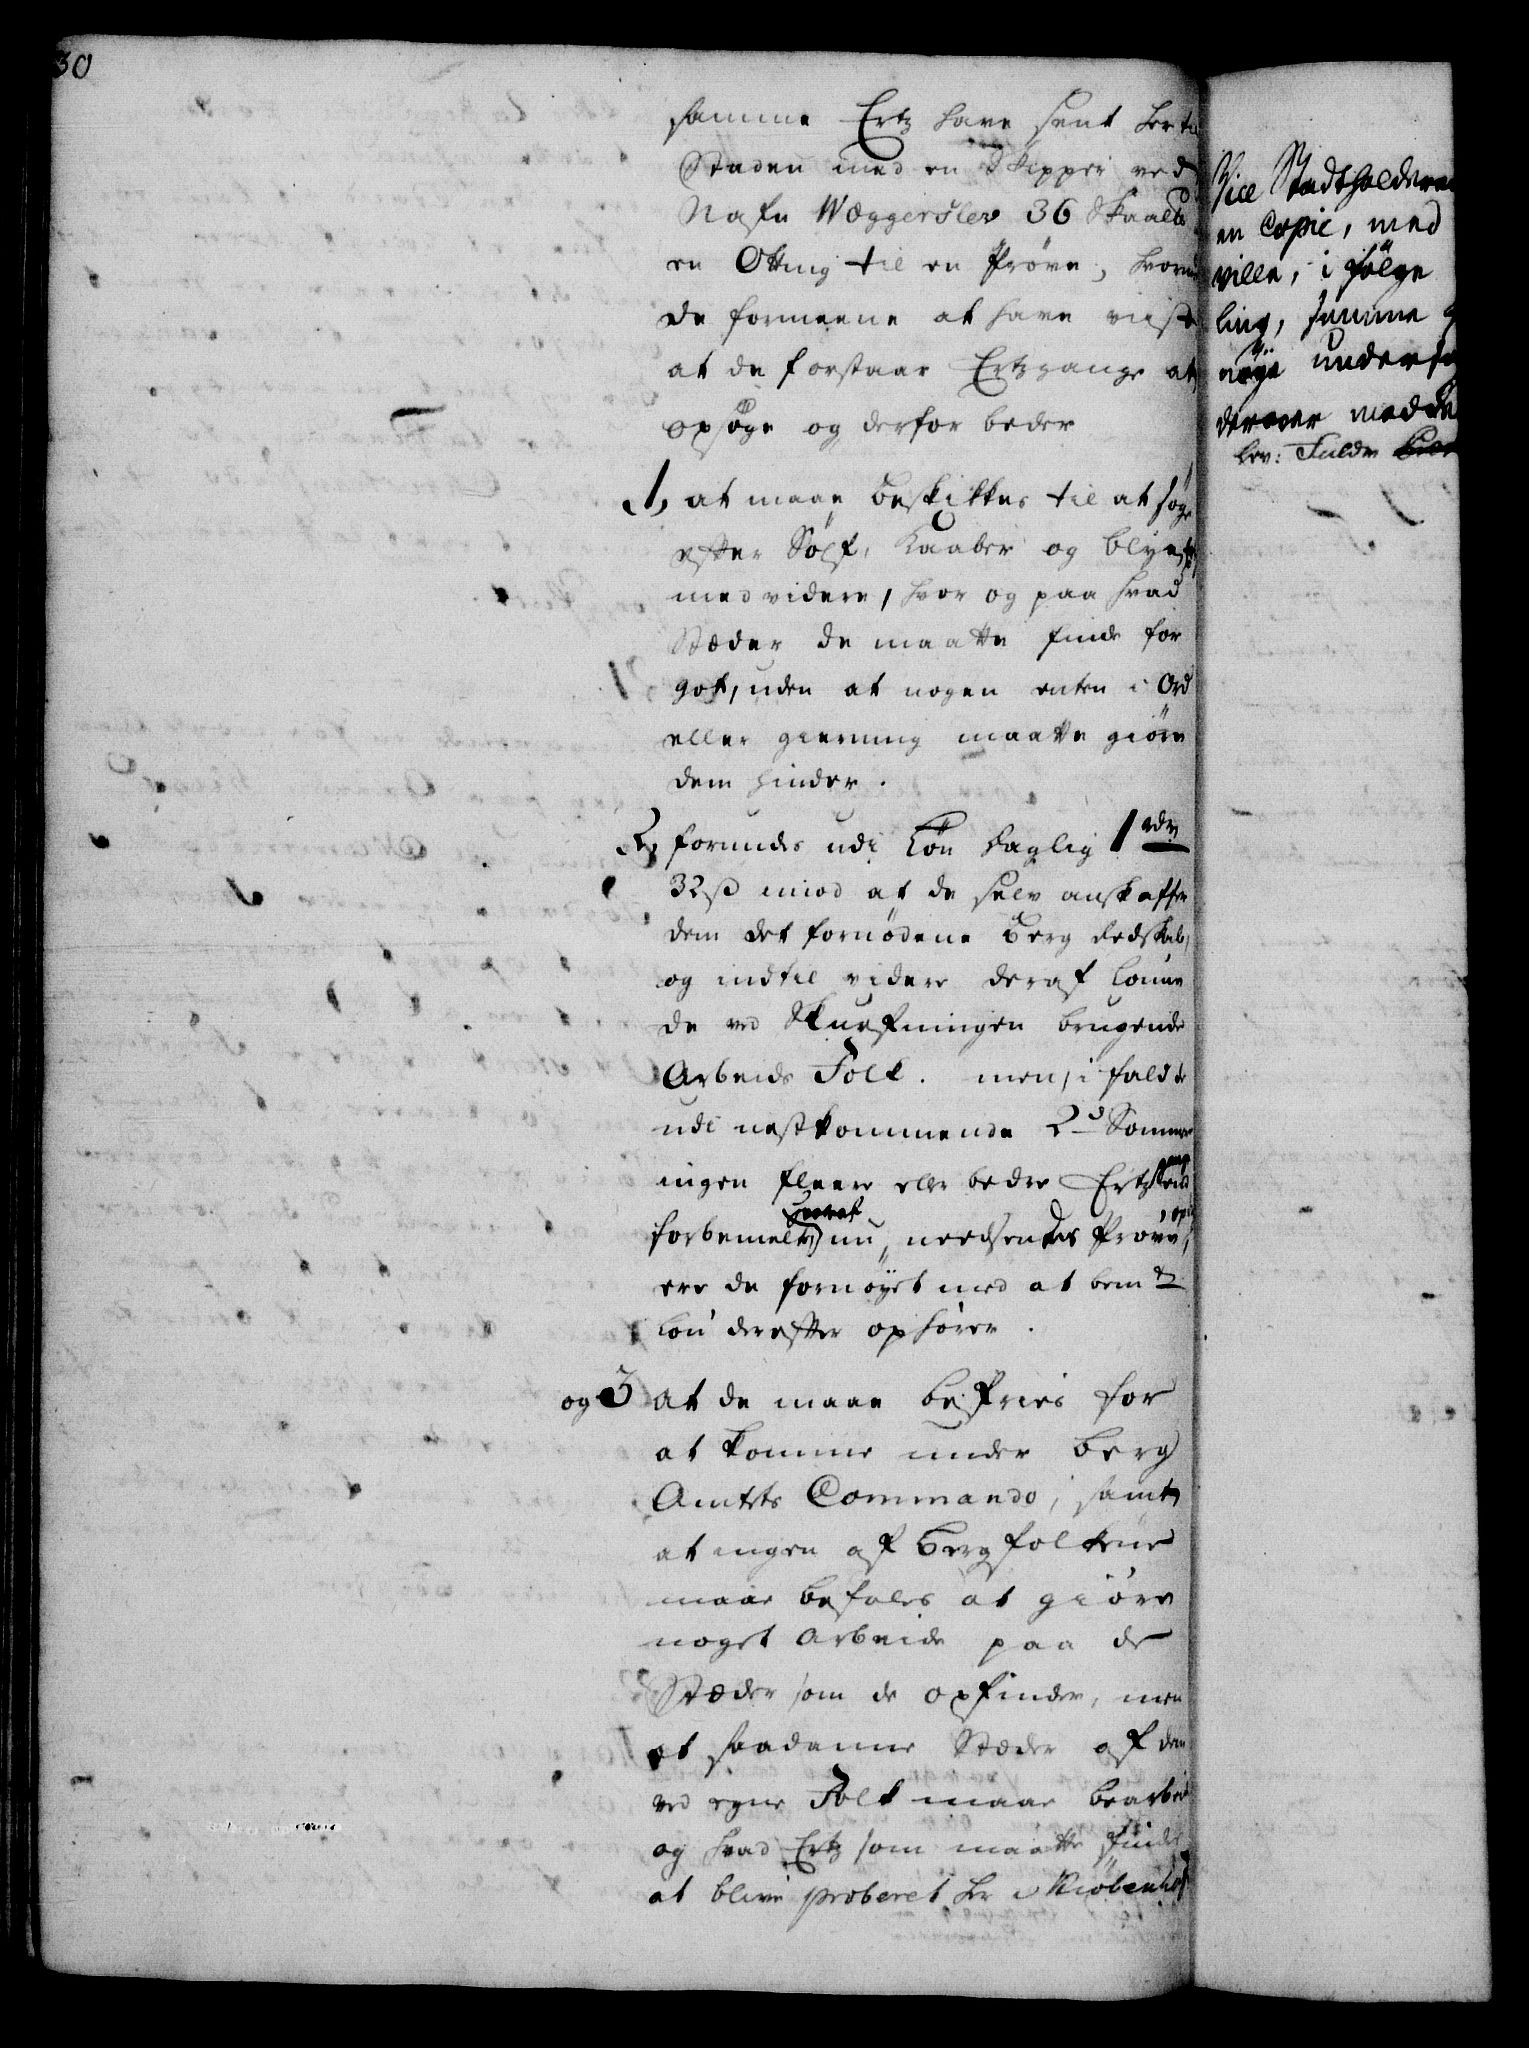 30
samme Ertz have sent her til
Staden med en Skipper ved
Nafn Wæggersløv 36 Skaale
en Otting til en Prøve, hvorved
de formeene at have viist
at de forstaar Ertzgange at
opsøge og derfor beder
1, at maae beskikkes til at søge
efter Sølf, Kaaber og blyertz
med videre, hvor og paa hvad
Stæder de maatte finde for
got, uden at nogen enten i Ord
eller gierning maatte giøre
dem hinder.
2, forundes udi Løn daglig 1 rdr
32 ß imod at de selv anskaffer
dem det fornødene Berg Redskab,
og indtil videre deraf lønne
de ved Skurfningen brugende
Arbeids Folk. men, i fald de
udi nestkommende 2de Sommer
ingen fleere eller bedre Ertzgange end
forbemelte, hvoraf nu needsendes Prøve,
ere de fornøyet med at bemte
Løn derefter ophører.
og 3 at de maae befries for
at komme under Berg
Amtets Commando, samt
at ingen af Bergfolkene
maae befales at giøre
noget arbeide paa de
Stæder som de opfinder, men
at saadanne Stæder af dem
ved egne Folk maae bearbeides
og hvad Ertz som maatte findes
at blive proberet her i Kiøbenhafn
Vice Stadtholderen
en Copie, med
ville, i følge
ling, samme
nøye undersø
derover medde
lev: Fuldm